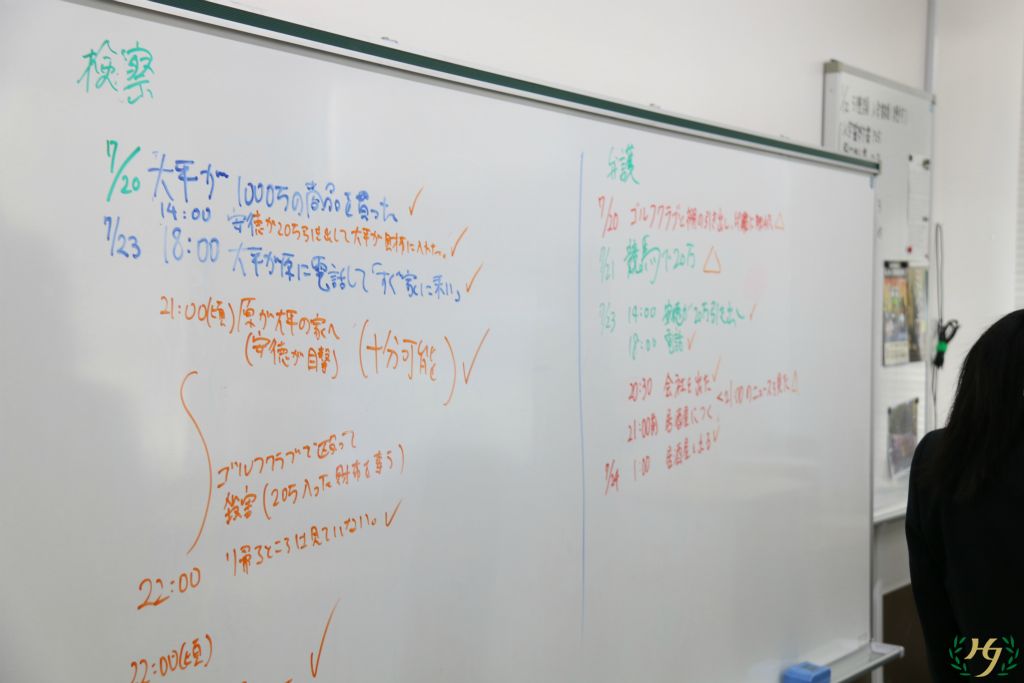 検察
7/20 大平が1000万の商品を買った ✓
7/23 14:00 安徳が20万引き出して大平が財布に入れた。✓
18:00 大平が原に電話して「すぐ家に来い」✓
21:00(頃) 原が大平の家へ
(安徳が目撃) (十分可能) ✓
ゴルフクラブで殴って
殺害(20万入った財布を奪う)
22:00 帰るところは見ていない。✓
22:00(頃) ✓
弁護
7/20 ゴルフクラブと
7/21 競馬で20万 △
7/23 14:00 安徳が20万引き出し ✓
18:00 電話 ✓
20:30 会社を出た ✓
<21:00のニュースを見た △
21:00前 居酒屋につく ✓
7/24 1:00 居酒屋を出る ✓
HJ